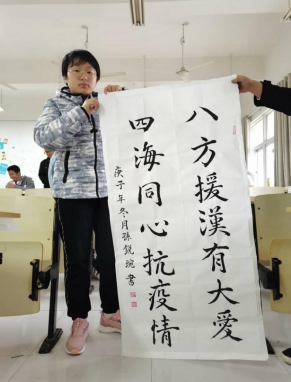 八方援漢有大愛
四海同心抗疫情
庚子年冬月孫銳琬書